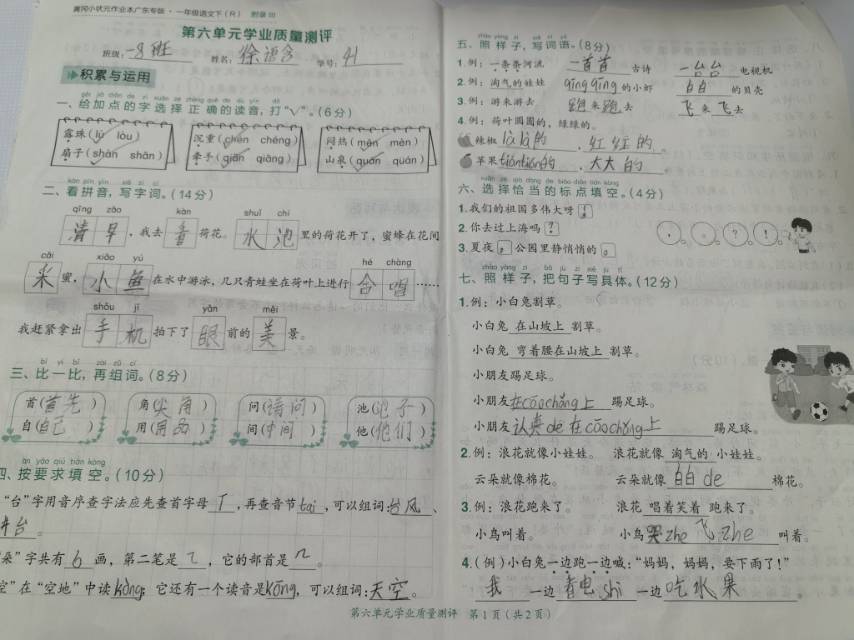 黄冈小状元作业本广东专版·一年级语文下（R） 附录⑪
第六单元学业质量测评
班级: 一8班 姓名: 徐语含 学号: 41
积累与运用
一、给加点的字选择正确的读音，打“√”。(6分)
露珠(lù lòu) 沉重(chén chéng) 闷热(mēn mèn)
扇子(shàn shān) 牵手(qiān qiāng) 山泉(quan quán)
二、看拼音，写字词。(14分)
qīng zǎo kàn shuǐ chí
清早，我去看荷花。水池里的荷花开了，蜜蜂在花间
cǎi xiǎo yú hé chàng
采蜜，小鱼在水中游泳，几只青蛙坐在荷叶上进行合唱……
shǒu jī yǎn měi
我赶紧拿出手机拍下了眼前的美景。
三、比一比，再组词。(8分)
首(首先) 角(尖角) 问(请问) 池(池子)
自(自己) 用(用西) 间(中间) 他(他们)
四、按要求填空。(10分)
“台”字用音序查字法应先查首字母T，再查音节tai，可以组词:台风、
台。
”字共有6画，第二笔是乁，它的部首是几。
空”在“空地”中读kòng；它还有一个读音是kōng，可以组词:天空。
五、照样子，写词语。(8分)
1.例：一条条河流 一首首古诗 一台台电视机
2.例：淘气的娃娃 qīngqīng的小虾 白白的贝壳
3.例：游来游去 跑来跑去 飞来飞去
4.例：荷叶圆圆的，绿绿的。
辣椒là là的，红红的。
苹果tiántiánde的，大大的。
六、选择恰当的标点填空。(4分)
1.我们的祖国多伟大呀！
2.你去过上海吗？ ， 。 ？ ！
3.夏夜，公园里静悄悄的。
七、照样子，把句子写具体。(12分)
1.例：小白兔割草。
小白兔 在山坡上 割草。
小白兔 弯着腰在山坡上 割草。
小朋友踢足球。
小朋友在cāochǎng上 踢足球。
小朋友认真de在cāochǎng上 踢足球。
2.例：浪花就像小娃娃。 浪花就像 淘气的 小娃娃。
云朵就像棉花。 云朵就像 白白de 棉花。
3.例：浪花跑来了。 浪花 唱着笑着 跑来了。
小鸟叫着。 小鸟哭zhe飞zhe 叫着。
4.(例)小白兔一边跑一边喊：“妈妈，妈妈，要下雨了！”
我 一边看电shi 一边吃水果。
第六单元学业质量测评 第1页（共2页）